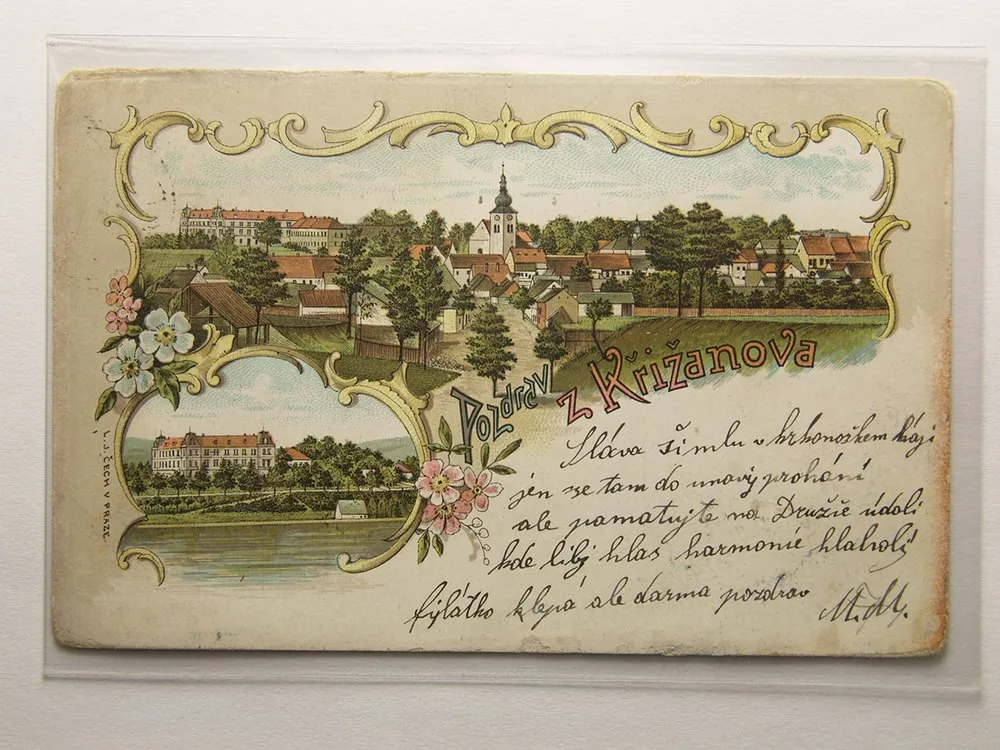 Pozdrav z Křižanova
L. J. ČECH V PRAZE.
Sláva Šimlu v krkonoškem kraji
jen se tam do unavy prohání
ale pamatujte na Družié údolí
kde libý hlas harmonié hlaholý
fijlátko klepá ale darma pozdrav M. M.